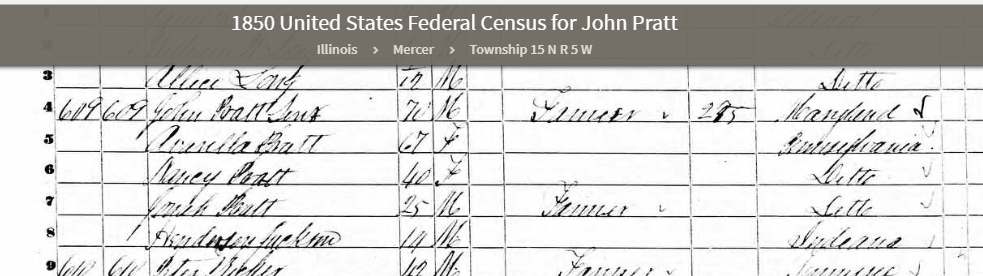 1850 United States Federal Census for John Pratt
Illinois > Mercer > Township 15 N R 5 W
3 M Ditto
4 609 609 John Pratt Senr 70 M Farmer 295 Maryland
5 Pratt 67 F Pennsylvania
6 Nancy Pratt 40 F Ditto
7 Pratt 25 M Farmer Ditto
8 Henderson Jackson 14 M Indiana
9 610 610 42 M Farmer